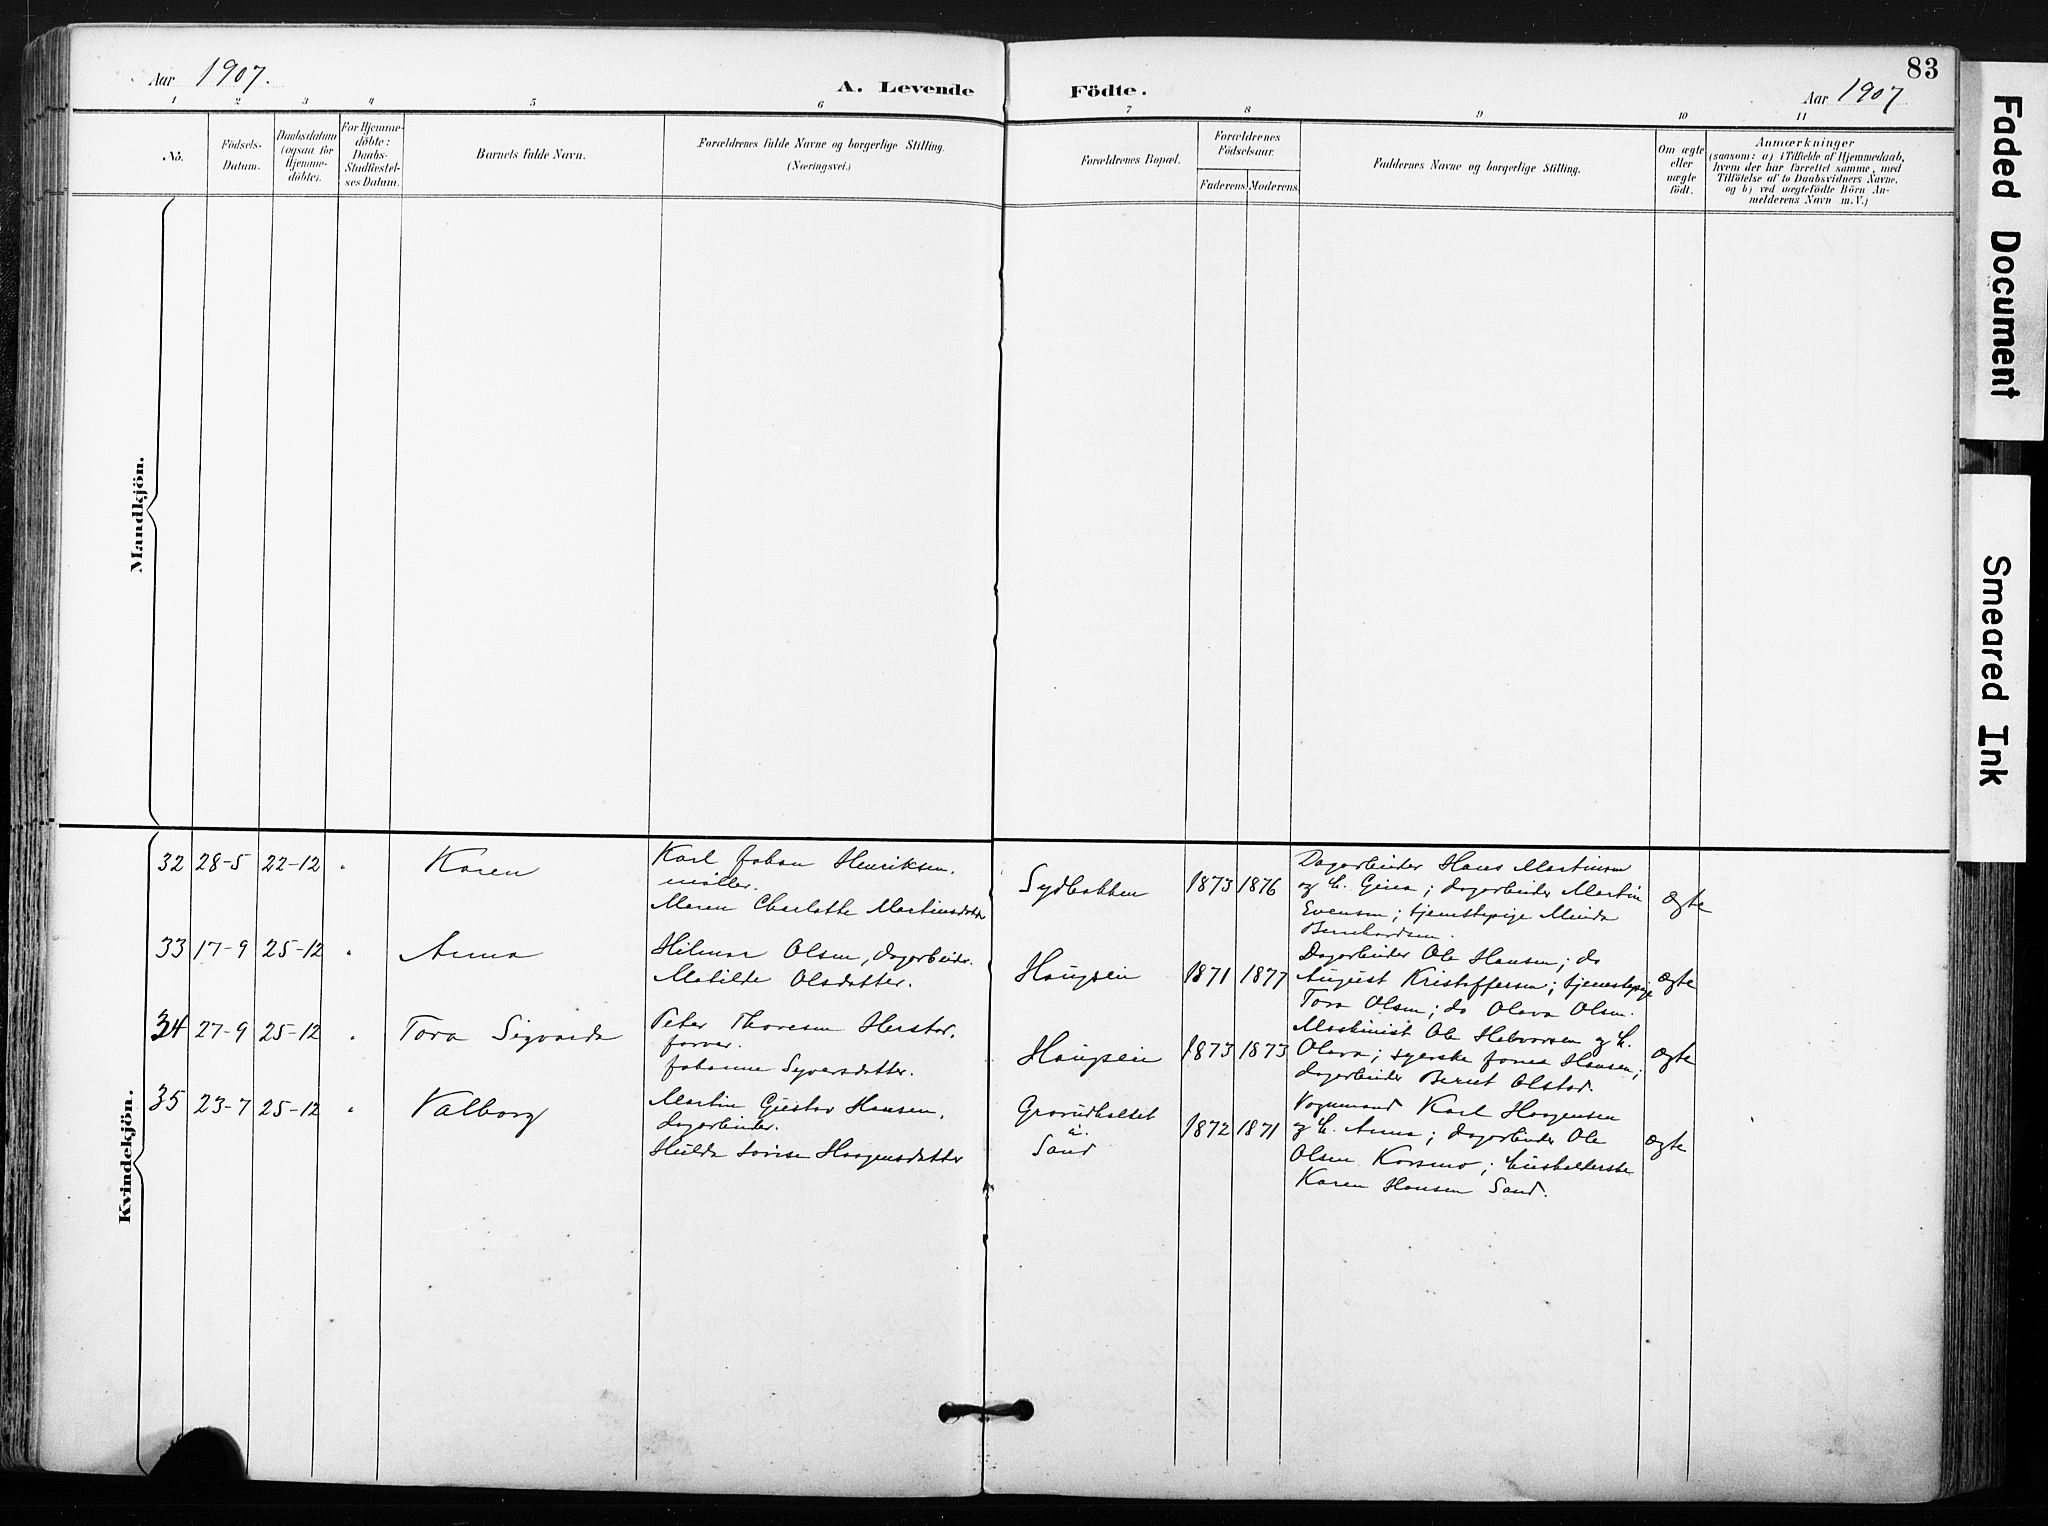 Aar 1907.
A. Levende Födte.
83
Aar 1907
1 2 3 4 5 6 7 8 9 10 11
No.
Födsels-
Datum.
Daabsdatum
(ogsaa for
Hjemme-
döbte).
For Hjemme-
döbte:
Daabs-
Stadfæstel-
ses Datum.
Barnets fulde Navn.
Forældrenes fulde Navne og borgerlige Stilling.
(Næringsvei.)
Forældrenes Bopæl.
Forældrenes
Födselsaar.
Faderens. Moderens.
Faddernes Navne og borgerlige Stilling.
Om ægte
eller
uægte
födt.
Anmærkninger
(saasom: a) i Tilfælde af Hjemmedaab,
hvem der har forrettet samme, med
Tilföielse af to Daabsvidners Navne,
og b) ved uægtefödte Börn An-
melderens Navn m. V.)
Mandkjön.
Kvindekjön.
32 28-5 22-12 " Karen
Karl Johan Henriksen,
møller.
Maren Charlotte Martinsdatter
Sydbakken 1873 1876
Dagarbeider Hans Martinsen
og h. Gina; dagarbeider Martin
Evensen; tjenestepige Minda
Bernhardsen.
ægte
33 17-9 25-12 " Anna
Hilmar Olsen, dagarbeider.
Matilde Olsdatter.
Haugsein 1871 1877
Dagarbeider Ole Hansen; do
August Kristoffersen; tjenestepige
Tora Olsen; do Olava Olsen.
ægte
34 27-9 25-12 " Tora Sigvarda
Peter Thoresen Herstad,
farver.
Johanne Syversdatter.
Haugsein 1873 1873
Maskinist Ole Halvorsen og h.
Olava; syerske Hansen;
dagarbeider Bernt Olstad.
ægte
35 23-7 25-12 " Valborg
Martin Gustav Hansen,
dagarbeider.
Hulda Lovise Haagensdatter
Gravudholtet
u.
Sand
1872 1871
Vognmand Karl Haagensen
og h. Anna; dagarbeider Ole
Olsen Korsmo; husholderske
Karen Hansen Sand.
ægte
Faded Document
Smeared Ink